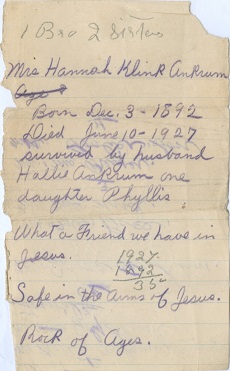 1 Bro 2 Sisters
Mrs Hannah Klink Ankrum
Age
Born Dec. 3-1892
Died June 10-1927
survived by husband
Hallie Ankrum one
daughter Phyllis.
What a Friend we have in
Jesus.
1927
1892
35
Safe in the Arms of Jesus.
Rock of Ages.